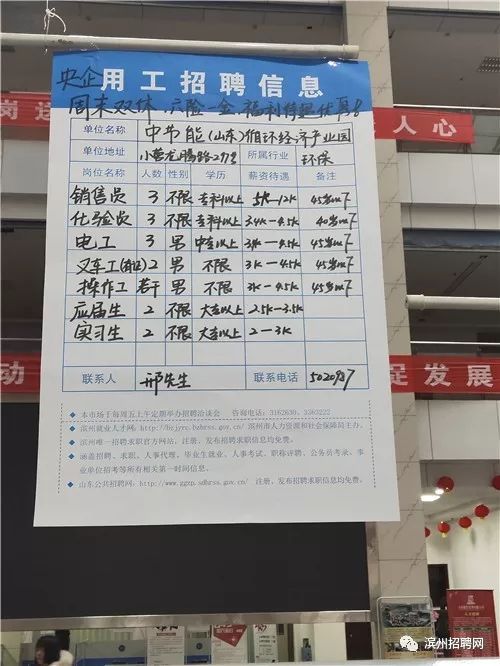 央企用工招聘信息
周末双休 六险一金 福利待遇优厚!
岗
人心
单位名称 中节能(山东)循环经济产业园
单位地址 小营龙腾路27号 所属行业 环保
岗位名称 人数 性别 学历 薪资待遇 备注
销售员 3 不限 专科以上 5K-12K 45岁以下
化验员 3 不限 专科以上 3.4K-4.5K 40岁以下
电工 3 男 中专以上 45岁以下
叉车工 2 男 不限 3K-4.5K 45岁以下
操作工 若干 男 不限 3K-4.5K 45岁以下
应届生 2 不限 大专以上 2.5K-3.5K
实习生 2 不限 大专以上 2-3K
动
促发展
联系人 邢先生 联系电话
本市场于每周五上午定期举办招聘洽谈会 咨询电话:3162630、3363222
滨州就业人才网:http://bzjyrc.bzhrss.gov.cn/ 滨州市人力资源和社会保障局主办。
滨州唯一招聘求职官方网站,注册、发布招聘求职信息均免费。
涵盖招聘、求职、人事代理、毕业生就业、人事考试、职称评聘、公务员考录、事
业单位招考等所有相关第一时间信息。
山东公共招聘网:http://www.ggzp.sdhrss.gov.cn/ 注册、发布招聘求职信息均免费。
滨州招聘网